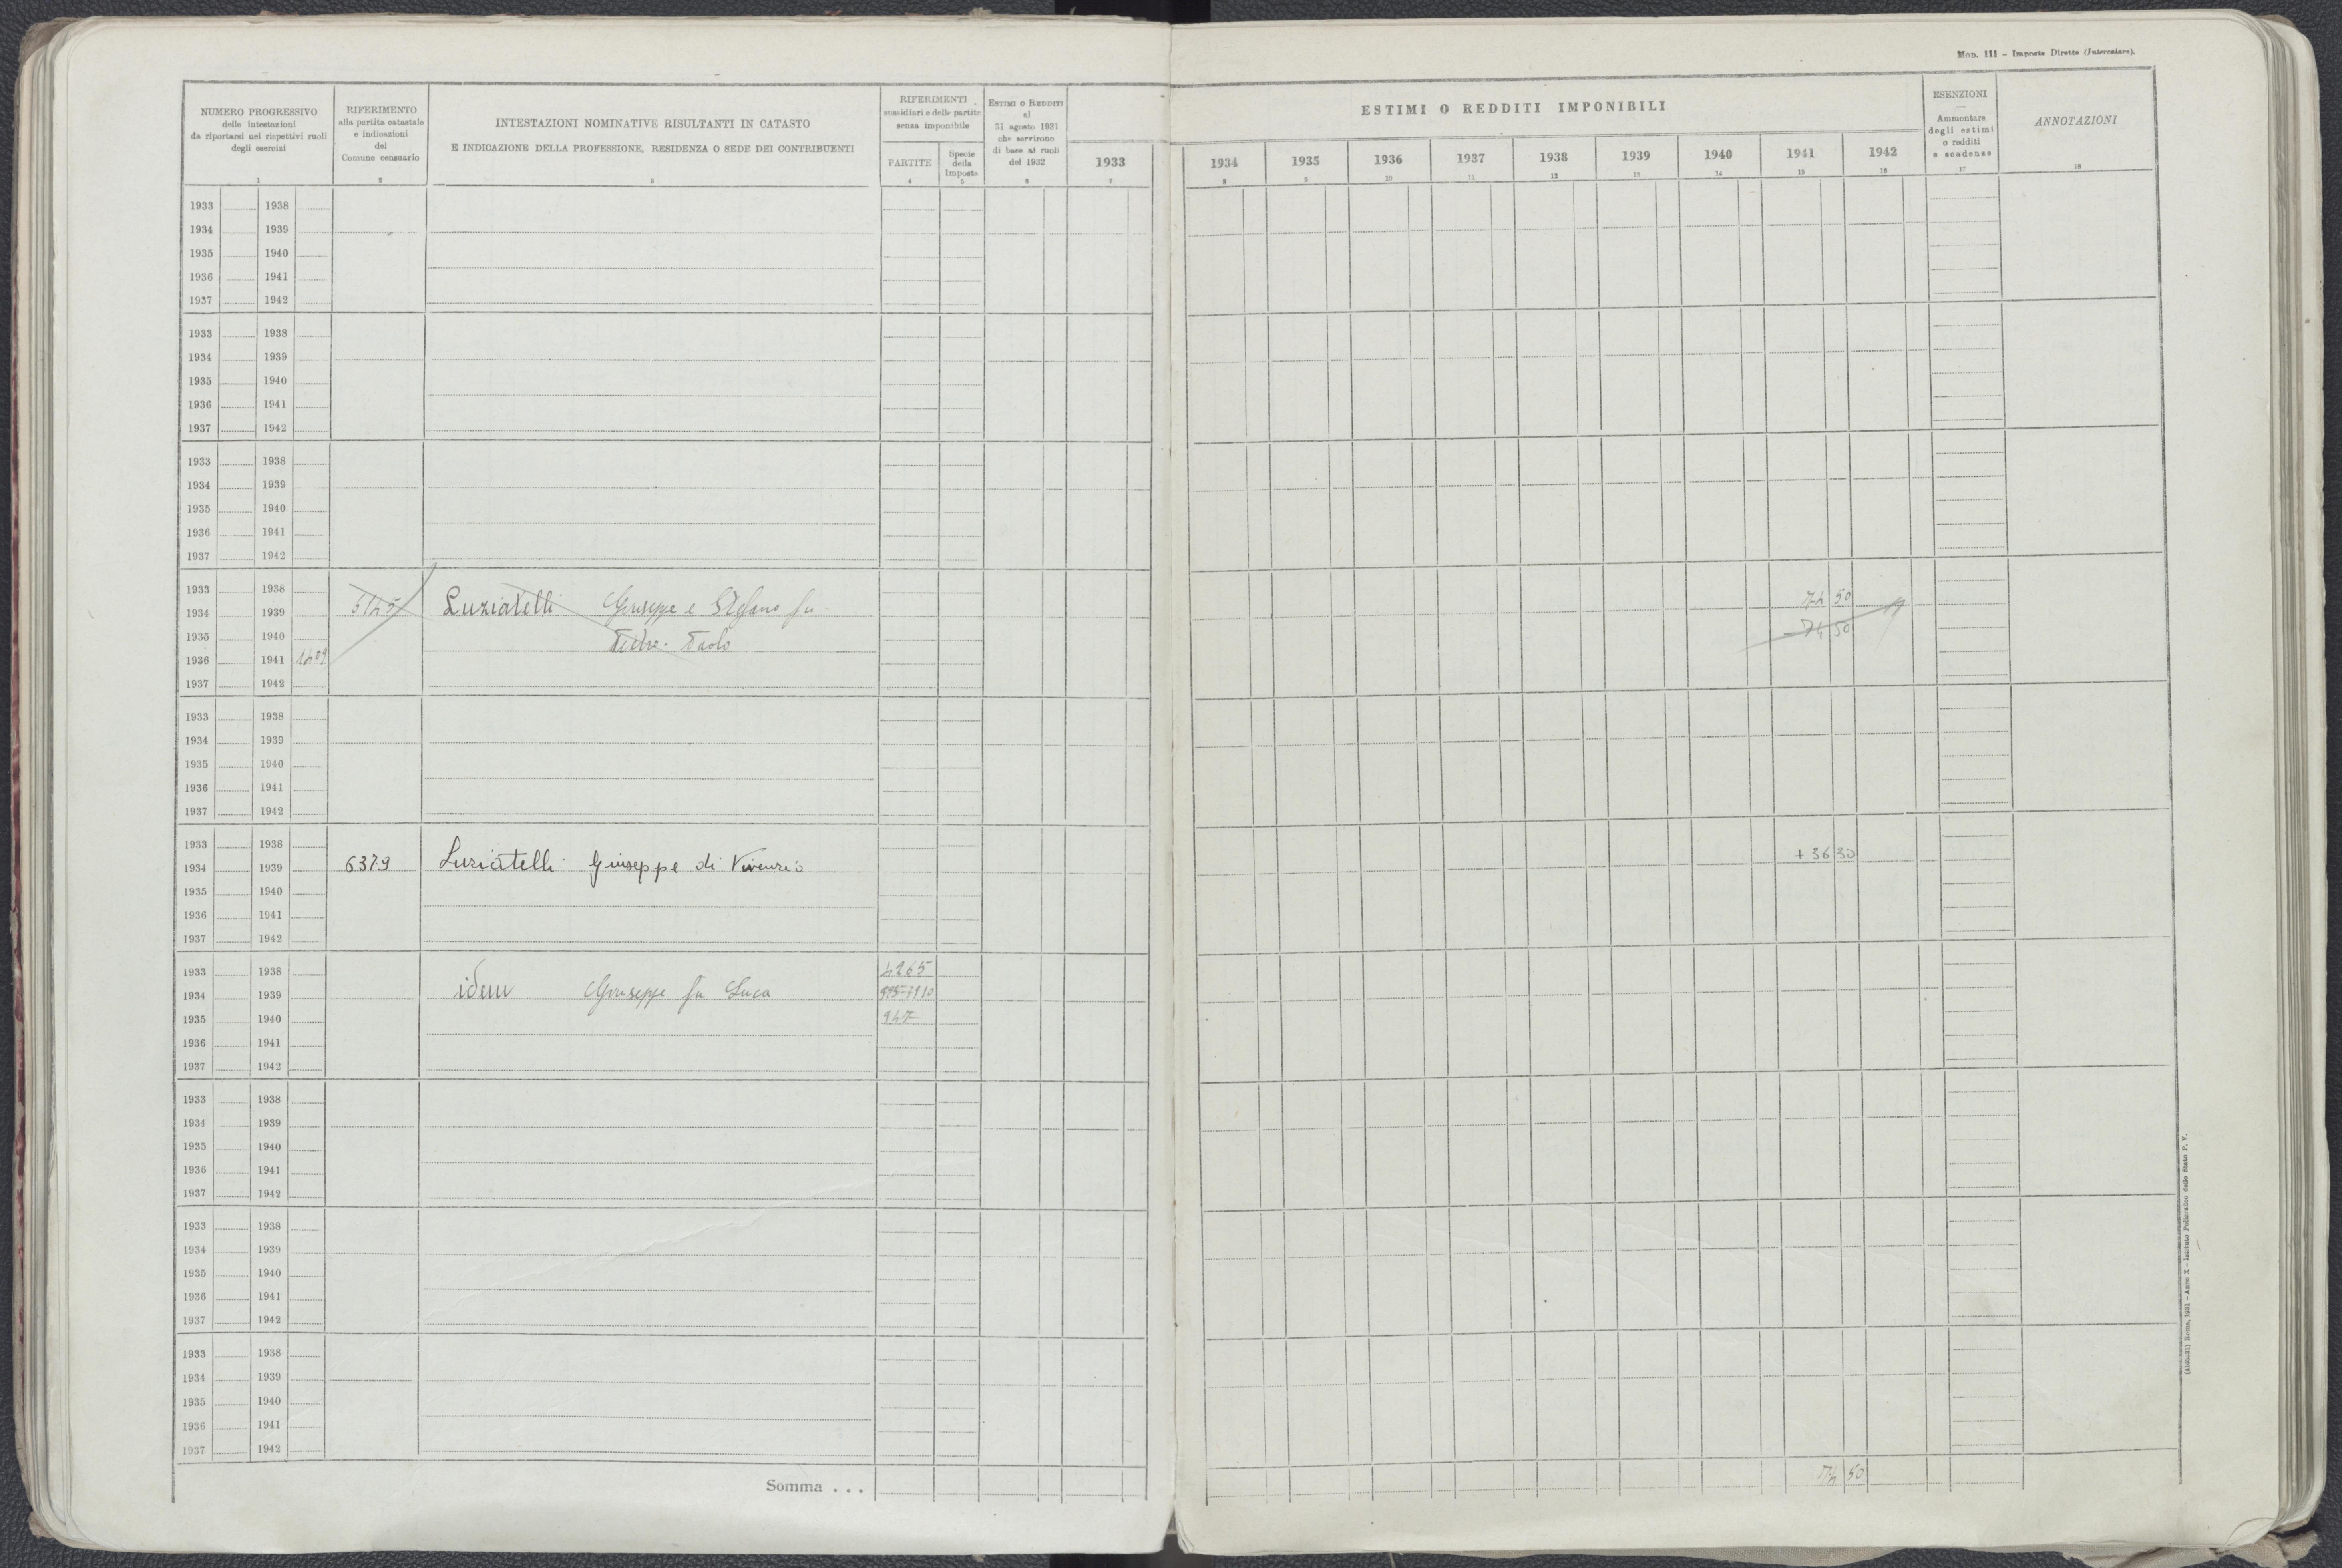 Mod. 111 - Imposte Dirette (Intercalare).
NUMERO PROGRESSIVO
delle intestazioni
da riportarsi nei rispettivi ruoli
degli esercizi
1
RIFERIMENTO
alla partita catastale
e indicazioni
del
Comune censuario
2
INTESTAZIONI NOMINATIVE RISULTANTI IN CATASTO
E INDICAZIONE DELLA PROFESSIONE, RESIDENZA O SEDE DEI CONTRIBUENTI
3
RIFERIMENTI
sussidiari e delle partite
senza imponibile
PARTITE
4
Specie
della
Imposta
5
ESTIMI O REDDITI
al
31 agosto 1931
che servirono
di base ai ruoli
del 1932
6
1933
7
ESTIMI O REDDITI IMPONIBILI
1934 1935 1936 1937 1938 1939 1940 1941 1942
8 9 10 11 12 13 14 15 16
ESENZIONI
—
Ammontare
degli estimi
o redditi
e scadenze
17
ANNOTAZIONI
18
1933 1938
1934 1939
1935 1940
1936 1941
1937 1942
1933 1938
1934 1939
1935 1940
1936 1941
1937 1942
1933 1938
1934 1939
1935 1940
1936 1941
1937 1942
1933 1938 74 50
1934 1939 6145 Luziatelli Giuseppe e Stefano fu
1935 1940 Pietro-Paolo - 74 50
1936 1941
1937 1942
1933 1938
1934 1939
1935 1940
1936 1941
1937 1942
1933 1938 + 36 30
1934 1939 6379 Luziatelli Giuseppe di Vincenzo
1935 1940
1936 1941
1937 1942
1933 1938 4265
1934 1939 idem Giuseppe fu Luca
1935 1940 947
1936 1941
1937 1942
1933 1938
1934 1939
1935 1940
1936 1941
1937 1942
1933 1938
1934 1939
1935 1940
1936 1941
1937 1942
1933 1938
1934 1939
1935 1940
1936 1941
1937 1942
Somma . . . 74 50